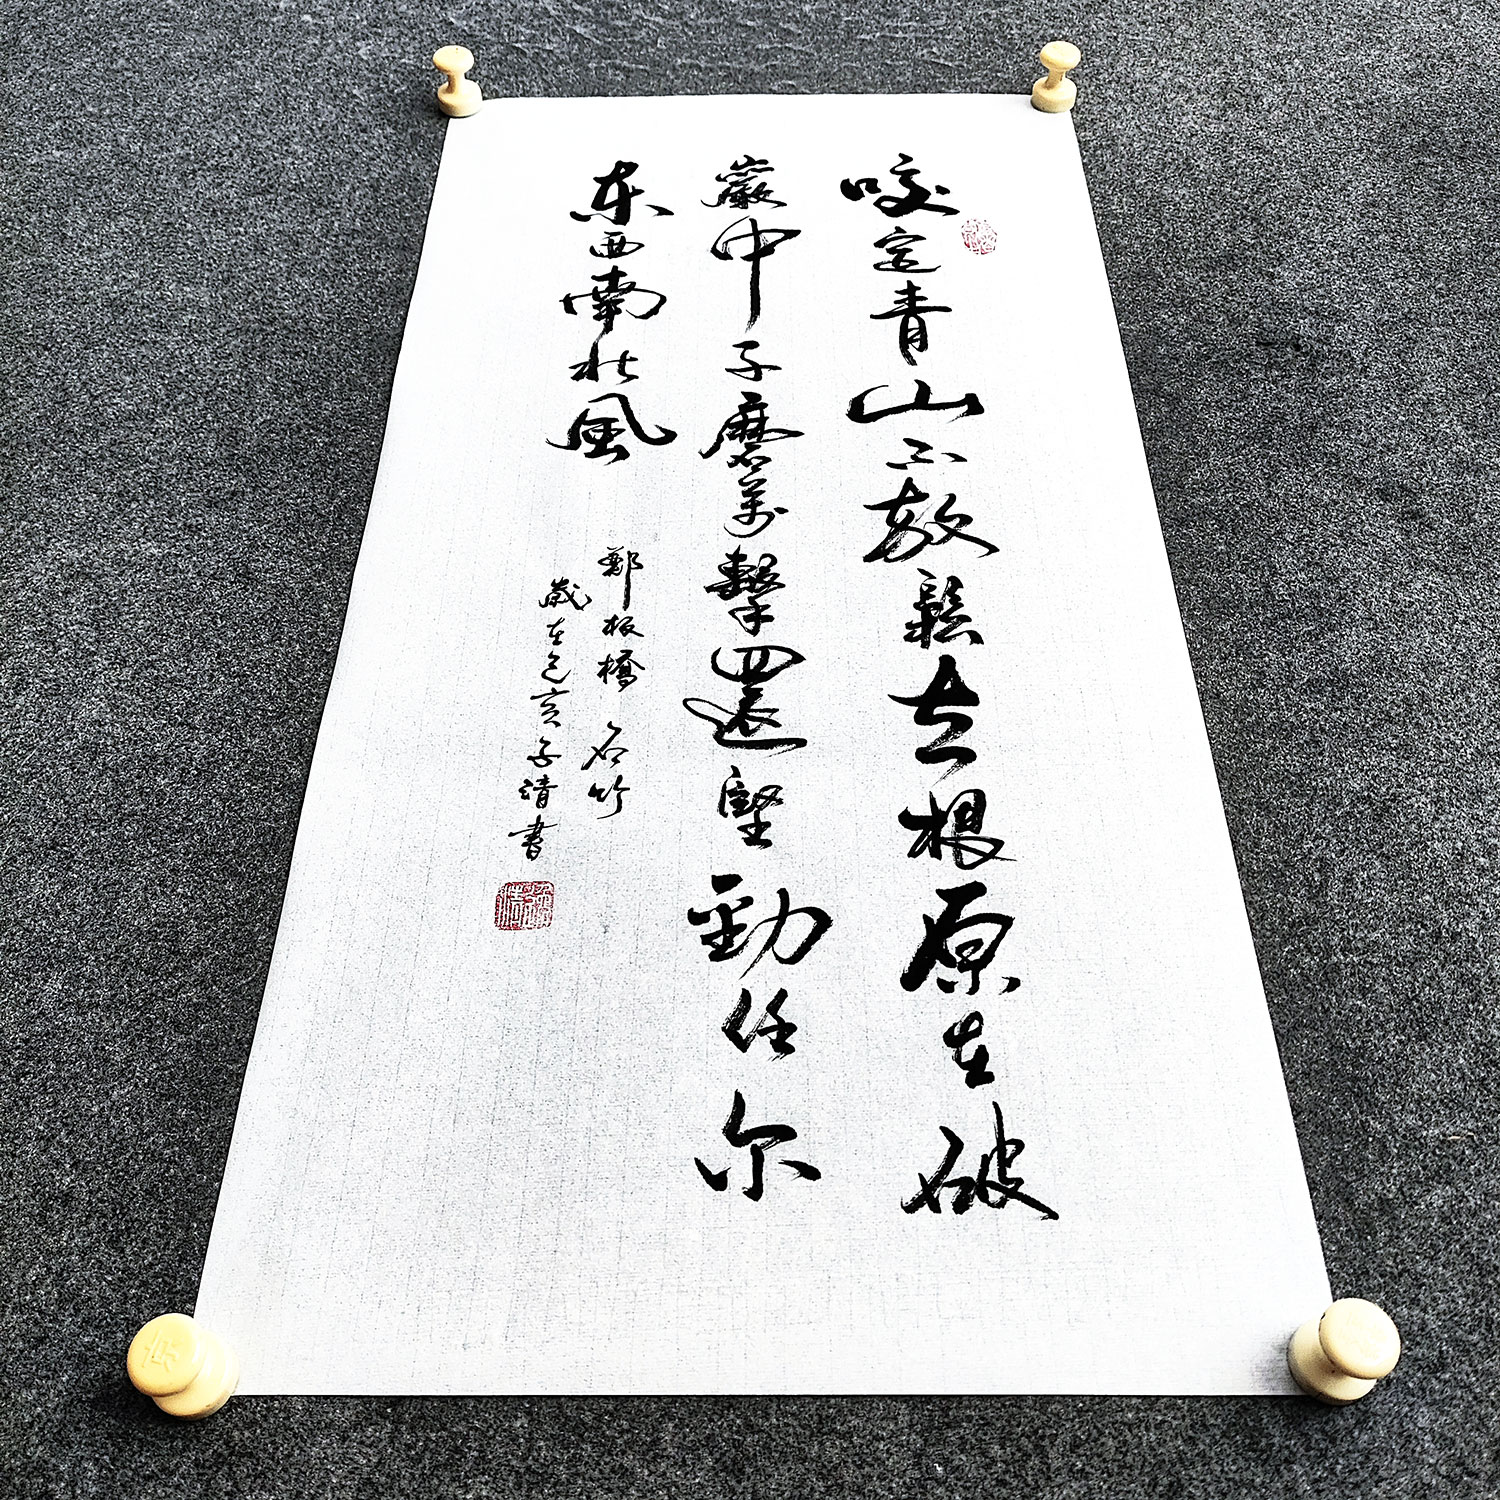 咬定青山不放鬆立根原在破
巖中千磨萬擊還堅勁任尔
东西南北風
鄭板橋 石竹
歲在己亥子清書